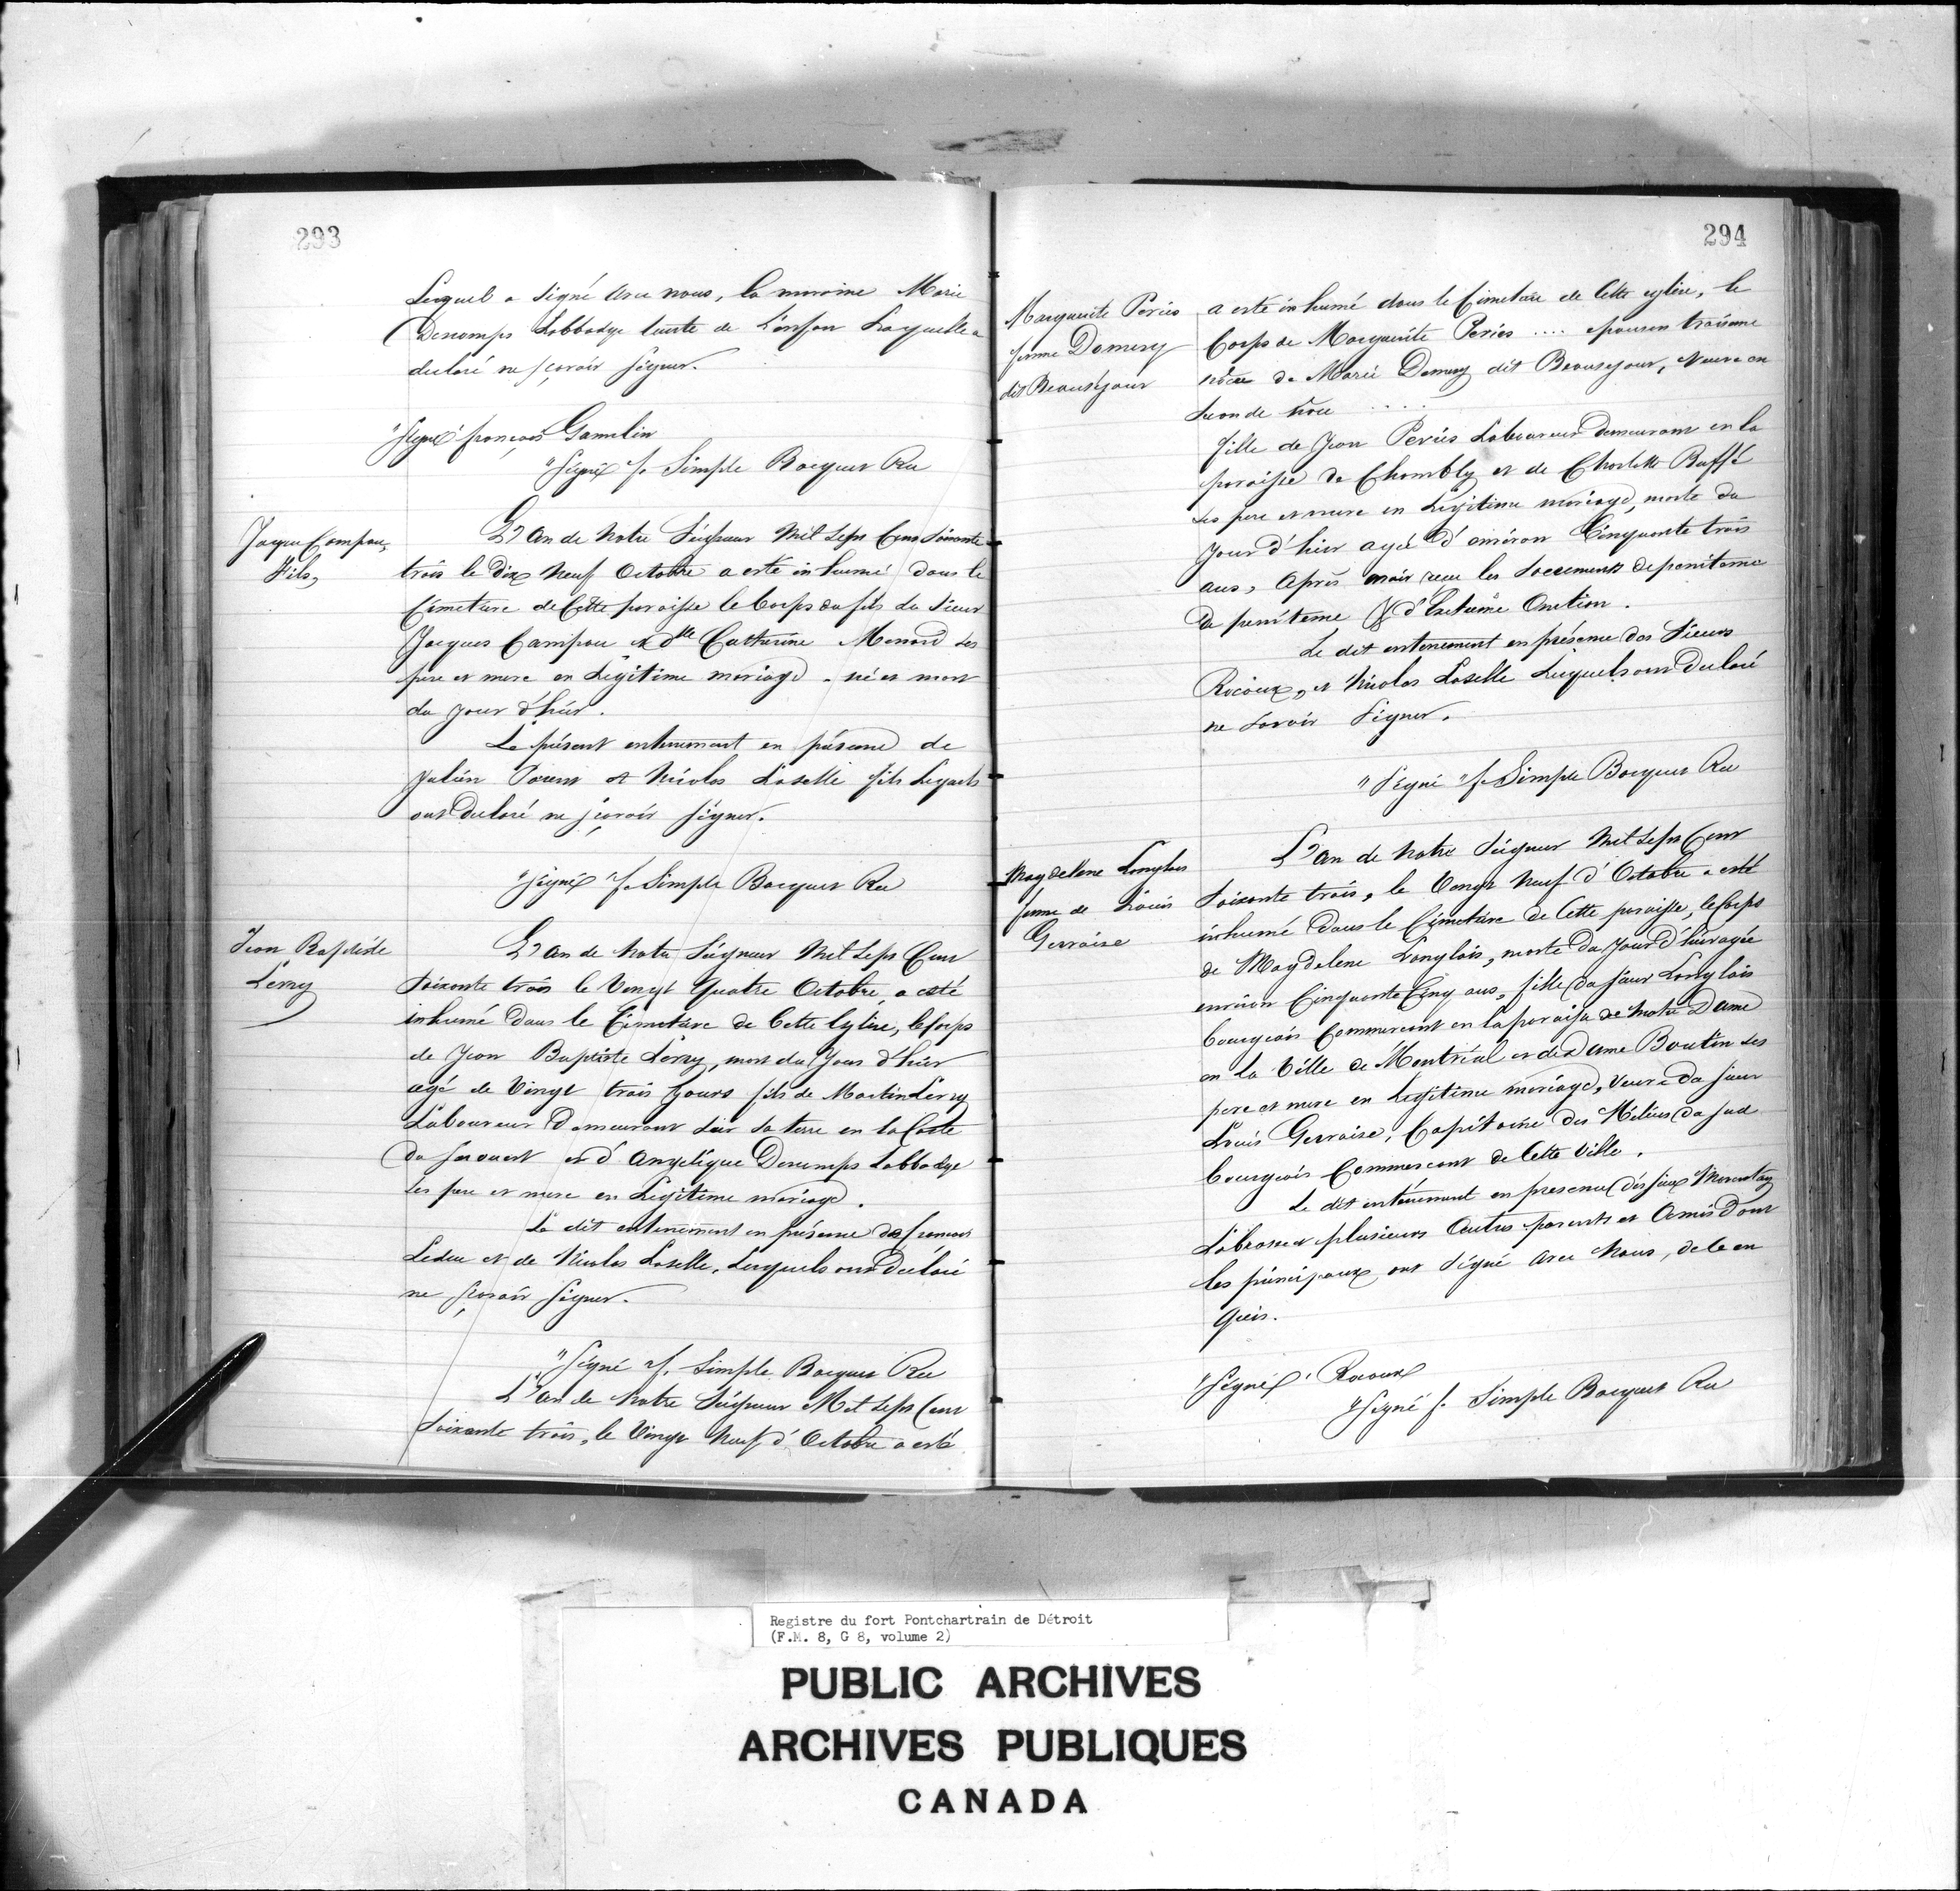 293
Lequel a signé avec nous, la maraine Marie
Decamps Labbadye tante de L'enfan Laquelle a
declaré ne sçavoir signer.
"Signé" françois Gamelin
"Signé" f. Simple Bocquet Rec
Jaque Campau,
Fils,
L'an de Notre Seigneur Mil Sept Cens Soixante
trois le Dix Neuf Octobre a esté inhumé dans le
Cimetiere de Cette paroisse le Corps du fils du Sieur
Jacques Campau et dlle Catherine Menard ses
pere et mere en Légitime mariage. né et mort
du jour d'hier.
Le présent enterrement en présence de
Julien Parent et Nicolas Laselle fils Lequels
ont declaré ne sçavoir signer.
"Signé" f. Simple Bocquet Rec
Jean Baptiste
Lérry
L'an de Notre Seigneur Mil Sept Cens
Soixante trois le Vengt Quatre Octobre, a esté
inhumé Dans le Cimetiere de Cette Eglise, le Corps
de Jean Baptiste Lérry, mort du Jour d'hier
agé de Vingt trois Jours fils de Martin Lérry
Laboureur Demeurant Sur Sa terre en la Coste
du et d'Angelique Decamps Labbadye
Ses pere et mere en Légitime mariage.
Le dit enterrement en présence de francois
Leduc et de Nicolas Laselle, Lesquels ont declaré
ne sçavoir signer.
"Signé f. Simple Bocquet Rec
L'an de Notre Seigneur Mil Sept Cent
Soixante trois, le Vingt Neuf d'Octobre a esté
294
Marguerite Periés
femme Domery
dit Beauséjour
a esté inhumé dans le Cimetiere de Cette eglise, le
Corps de Marguerite Periés .... epouse en troisieme
nôce de Marie Demery dit Beausejour, Veuve en
seconde nôce ....
fille de Jean Periés Laboureur Demeurant en la
paroisse de Chambly et de Charlotte Buffé
ses pere et mere en Légitime mariage, morte du
jour d'hier agée d'environ Cinquante trois
ans, Après avoir reçu les Sacrements de penitence
de penitence & d'Extreme Onction.
Le dit enterrement en présence des Sieurs
Racoux, et Nicolas Laselle Lesquels ont declaré
ne savoir signer.
"Signé" f. Simple Bocquet Rec
Magdelene Langlois
femme de Louis
Gervaise
L'an de Notre Seigneur Mil Sept Cent
Soixante trois, le Vengt Neuf d'Octobre a esté
inhumé Dans le Cimetiere de Cette paroisse, le Corps
de Magdelene Langlois, morte du Jour d'hier agée
environ Cinquante Cinq ans, fille du sieur Langlois
bourgeois Commercant en la paroisse de Notre Dame
en la Ville de Montréal et de Dame Boutin ses
pere et mere en Légitime mariage, Veuve du sieur
Louis Gervaise, Capitaine des Milices du Sud
bourgeois Commerçant de Cette Ville.
Le dit enterrement en presence des sieurs
plusieurs Autres parents et Amis Dont
les principaux ont Signé avec Nous, de ce en
quis.
"Signé" Racoux
"Signé f. Simple Bocquet Rec
Registre du fort Pontchartrain de Détroit
(F.M. 8, G 8, volume 2)
PUBLIC ARCHIVES
ARCHIVES PUBLIQUES
CANADA